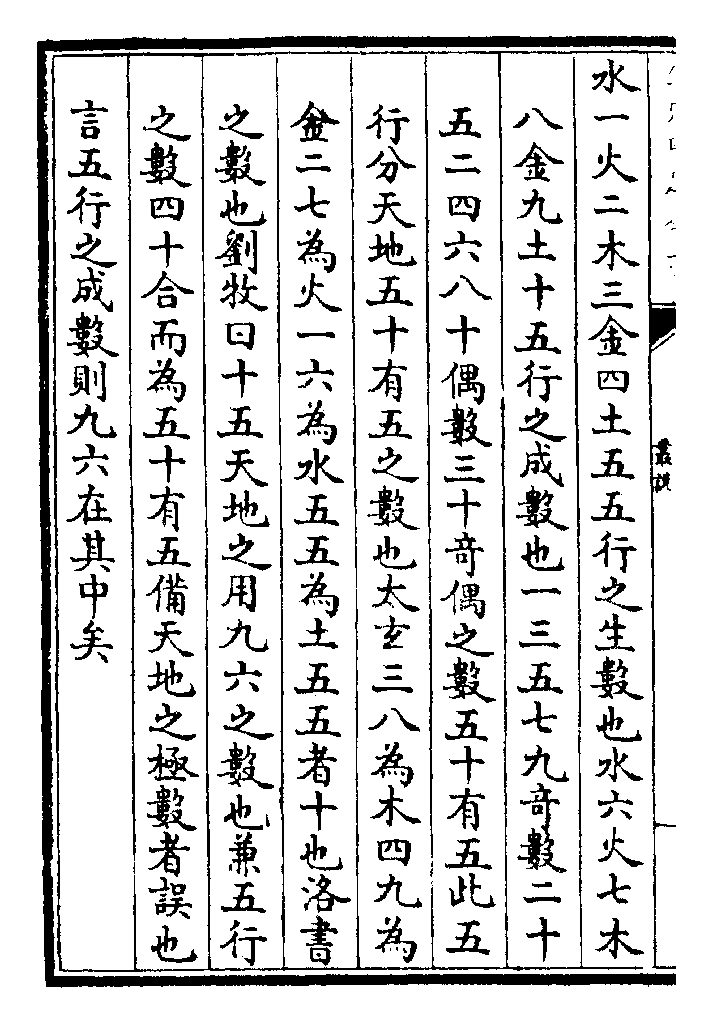 水一火二木三金四土五五行之生數也水六火七木
八金九土十五行之成數也一三五七九奇數二十
五二四六八十偶數三十奇偶之數五十有五此五
行分天地五十有五之數也太玄三八為木四九為
金二七為火一六為水五五為土五五者十也洛書
之數也劉牧曰十五天地之用九六之數也兼五行
之數四十合而為五十有五備天地之極數者誤也
言五行之成數則九六在其中矣
叢說